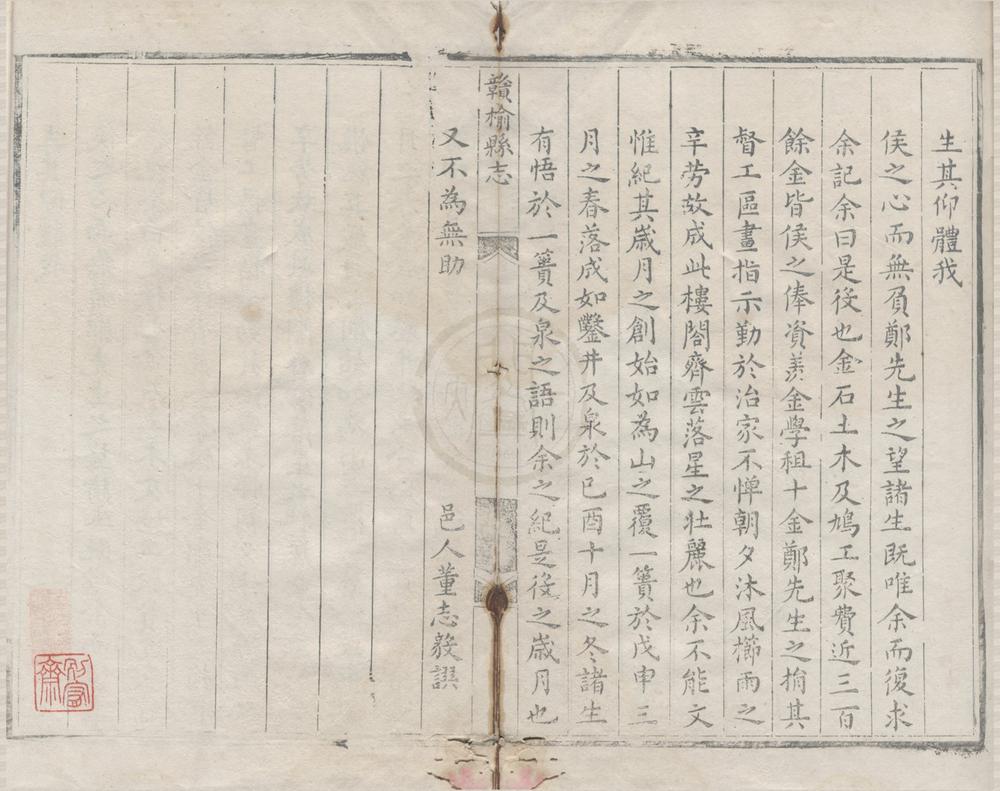 生其仰體我
侯之心而無負鄭先生之望諸生既唯余而復求
余記余曰是役也金石土木及鳩工聚費近三百
餘金皆侯之俸資羨金學租十金鄭先生之捐其
督工區畫指示勤於治家不憚朝夕沐風櫛雨之
辛劳故成此樓閣齊雲落星之壮麗也余不能文
惟紀其歲月之創始如為山之覆一簣於戊申三
月之春落成如鑿井及泉於己酉十月之冬諸生
有悟於一簣及泉之語則余之紀是役之歲月也
贛榆縣志
又不為無助
邑人董志毅譔